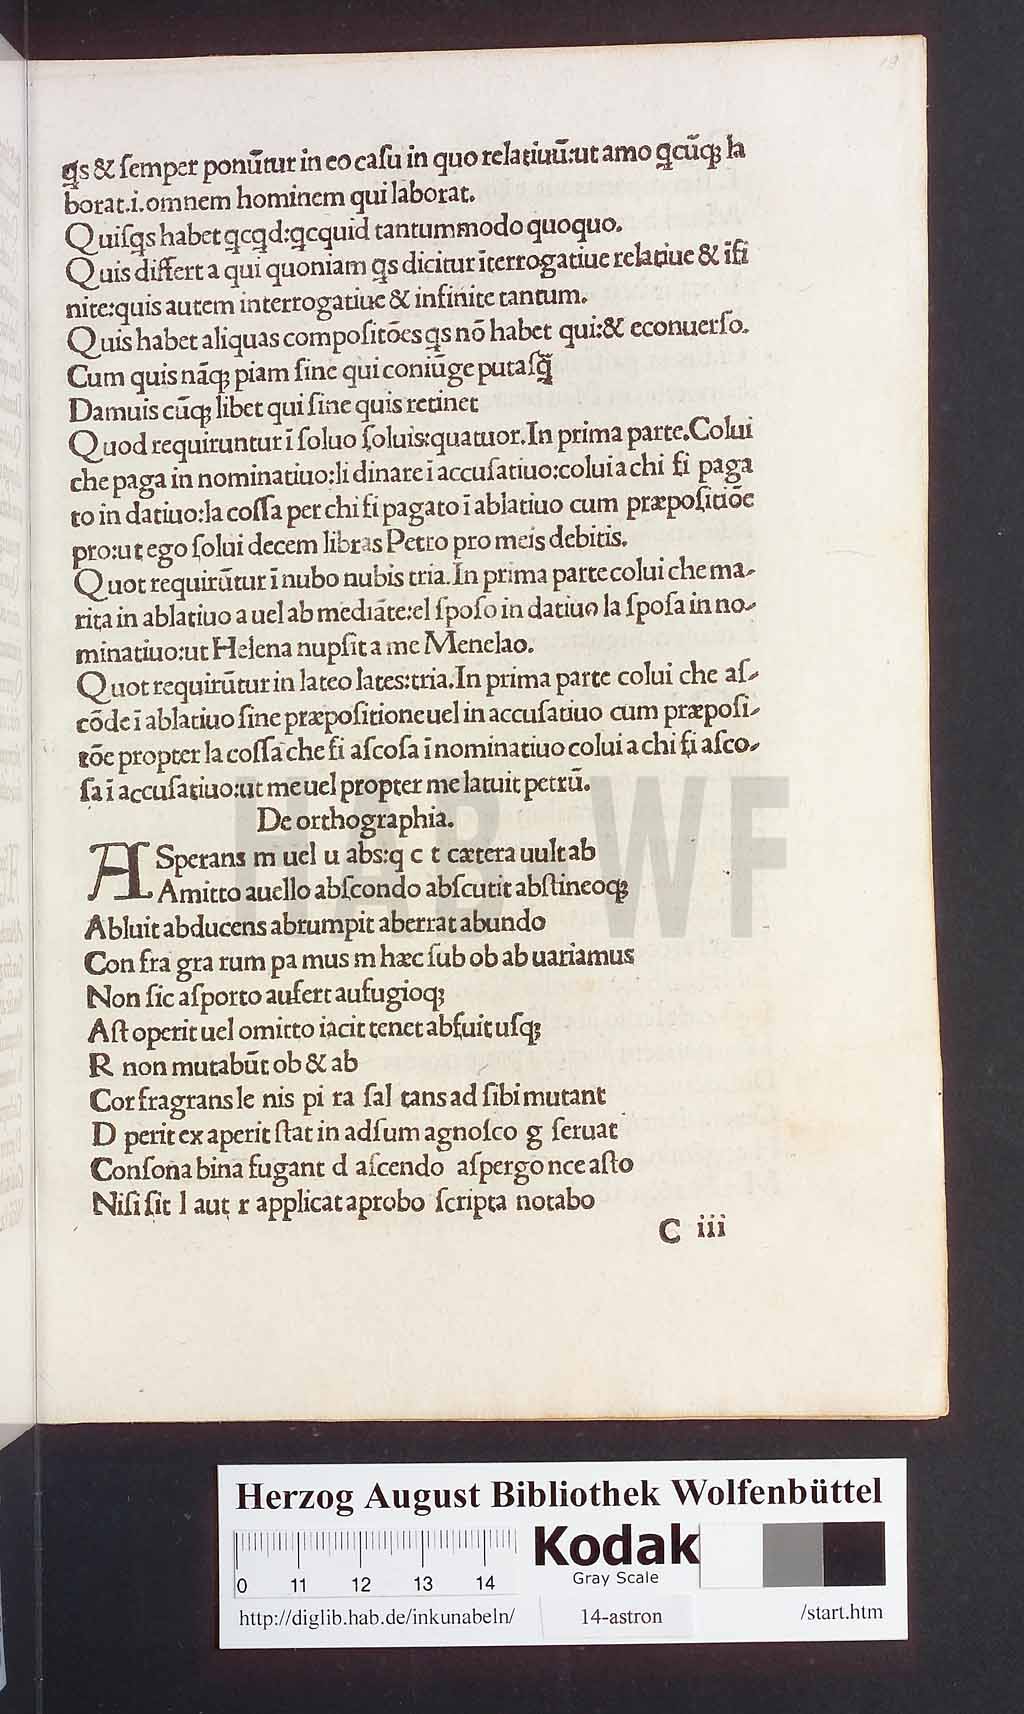 19
q̃s & ſemper ponũtur in eo caſu in quo relatiuũ:ut amo q̃cũqꝫ la
borat.i.omnem hominem qui laborat.
Quiſq̃s habet q̃cq̃d:q̃cquid tantummodo quoquo.
Quis differt a qui quoniam q̃s dicitur ĩterrogatiue relatiue & ĩfi
nite:quis autem interrogatiue & infinite tantum.
Quis habet aliquas compoſitões q̃s nõ habet qui:& econuerſo.
Cum quis nãqꝫ piam ſine qui coniũge putaſq̃
Damuis cũqꝫ libet qui ſine quis retinet
Quod requiruntur ĩ ſoluo ſoluis:quatuor.In prima parte.Colui
che paga in nominatiuo:li dinare ĩ accuſatiuo:colui a chi ſi paga
to in datiuo:la coſſa per chi ſi pagato ĩ ablatiuo cum præpoſitiõe
pro:ut ego ſolui decem libras Petro pro meis debitis.
Quot requirũtur ĩ nubo nubis tria.In prima parte colui che ma-
rita in ablatiuo a uel ab mediãte:el ſpoſo in datiuo la ſpoſa in no-
minatiuo:ut Helena nupſit a me Menelao.
Quot requirũtur in lateo lates:tria.In prima parte colui che aſ-
cõde ĩ ablatiuo ſine præpoſitione uel in accuſatiuo cum præpoſi-
tõe propter la coſſa che ſi aſcoſa ĩ nominatiuo colui a chi ſi aſco-
ſa ĩ accuſatiuo:ut me uel propter me latuit petrũ.
De orthographia.
ASperans m uel u abs:q c t cætera uult ab
Amitto auello abſcondo abſcutit abſtineoqꝫ
Abluit abducens abrumpit aberrat abundo
Con fra gra rum pa mus m hæc ſub ob ab uariamus
Non ſic aſporto aufert aufugioqꝫ
Aſt operit uel omitto iacit tenet abfuit uſqꝫ
R non mutabũt ob & ab
Cor fragrans le nis pi ra ſal tans ad ſibi mutant
D perit ex aperit ſtat in adſum agnoſco g ſeruat
Conſona bina fugant d aſcendo aſpergo nce aſto
Niſi ſit l aut r applicat aprobo ſcripta notabo
C iii
HAB WF
Herzog August Bibliothek Wolfenbüttel
0 11 12 13 14
Kodak
Gray Scale
http://diglib.hab.de/inkunabeln/ 14-astron /start.htm